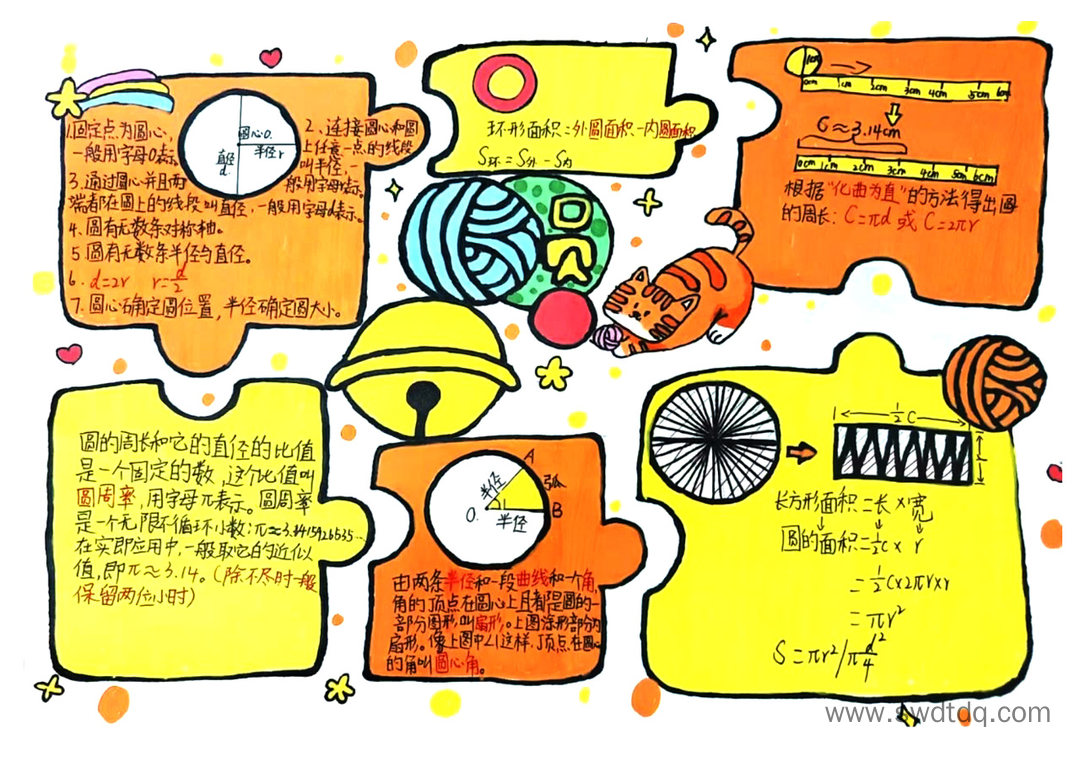 1.固定点为圆心,
一般用字母O表示。
圆心O.
半径r
直径
d.
2、连接圆心和圆
上任意一点的线段
叫半径,一
般用字母r表示。
3.通过圆心并且两
端都在圆上的线段叫直径,一般用字母d表示。
4.圆有无数条对称轴。
5.圆有无数条半径与直径。
6. d=2r r=d/2
7.圆心确定圆位置,半径确定圆大小。
环形面积=外圆面积-内圆面积
S环=S外-S内
1cm
0cm 1cm 2cm 3cm 4cm 5cm 6cm
C≈3.14cm
0cm 1cm 2cm 3cm 4cm 5cm 6cm
根据“化曲为直”的方法得出圆
的周长:C=πd 或 C=2πr
圆的周长和它的直径的比值
是一个固定的数,这个比值叫
圆周率,用字母π表示。圆周率
是一个无限不循环小数:π≈3.1415926535...
在实即应用中,一般取它的近似
值,即π≈3.14。(除不尽时一般
保留两位小时)
A
半径
弧
O.
半径
B
由两条半径和一段曲线和一个角,
角的顶点在圆心上且都是圆的一
部分图形,叫扇形。上图涂形部分为
扇形。像上图中∠1这样,顶点在圆心
的角叫圆心角。
½C
长方形面积=长×宽
圆的面积=½C×r
=½C×2πr×r
=πr²
S=πr²/π d²/4
www.swdtdq.com